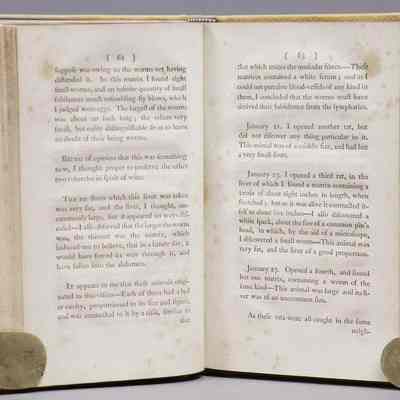 ( 62 )
suppose was owing to the worms not having
distended it. In this matrix I found eight
small worms, and an infinite quantity of small
substances much resembling fly blows, which
I judged were eggs. The largest of the worms
was about an inch long; the others very
small, but easily distinguishable so as to leave
no doubt of their being worms.
BEING of opinion that this was something
new, I thought proper to preserve the other
two tubercles in spirit of wine.
THE rat from which this liver was taken
was very fat, and the liver, I thought, un-
commonly large, but it appeared in no ways dis-
eased—I also observed that the larger the worm
was, the thinner was the matrix, which
induced me to believe, that in a future day, it
would have forced its way through it, and
have fallen into the abdomen.
IT appears to me that these animals origi-
nated in this viscus—Each of them had a bed
or cavity, proportioned to its size and figure,
and was connected to it by a
that
( 63 )
that which unites the muscular fibres—These
matrices contained a white serum; and as I
could not perceive blood-vessels of any kind in
them, I concluded that the worms must have
derived their subsistence from the lymphatics.
January 21. I opened another rat, but
did not discover any thing particular in it.
This animal was of a middle size, and had but
a very small liver.
January 23. I opened a third rat, in the
liver of which I found a matrix containing a
worm of about eight inches in length, when
stretched; but as it was alive it contracted it-
self to about six inches—I also discovered a
white speck, about the size of a common pin's
head, in which, by the aid of a microscope,
I discovered a small worm—This animal was
very fat, and the liver of a good proportion.
January 27. Opened a fourth, and found
but one matrix, containing a worm of the
same kind—This animal was large and its li-
ver was of an uncommon size.
As these rats were all caught in the same
neigh-